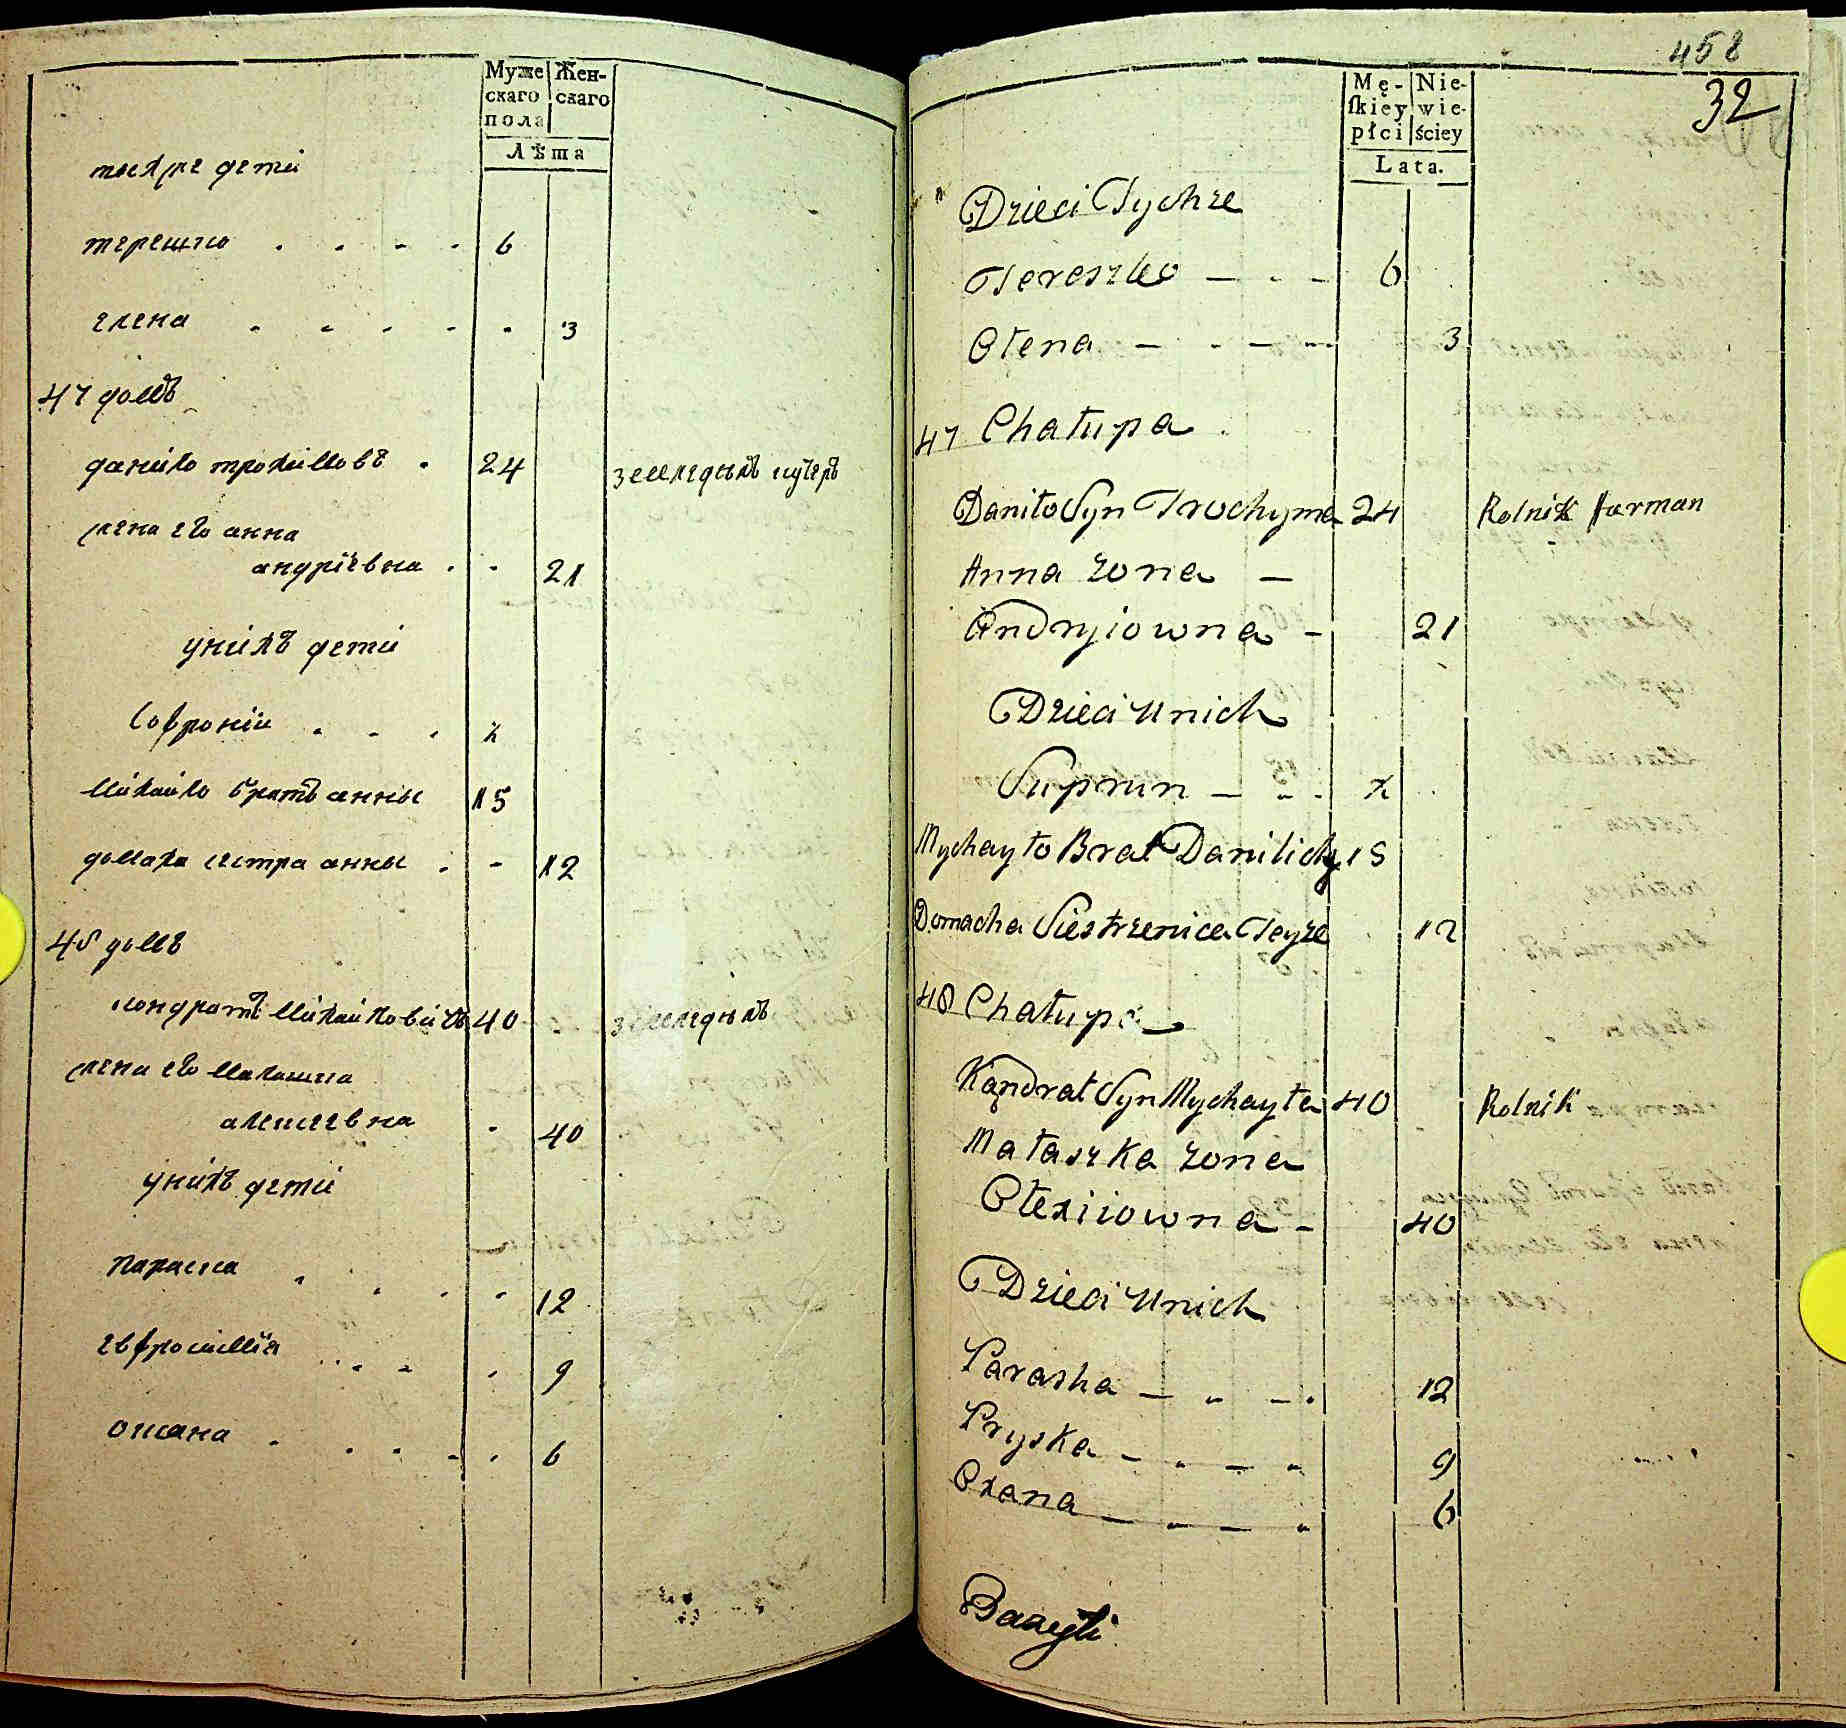 Муже Жен-
скаго скаго
пола
Лѣта
тыхже дети
терешко 6
елена 3
47 домъ
данило трохимовъ 24
жена его анна
андріевна 21
унихъ дети
Софроніи ½
михаило братъ анны 15
домаха сестра анны 12
48 домъ
кондратъ михаиловичъ 40 земледелъ
жена его малашка
алексеевна 40
унихъ дети
параска 12
евфросимія 9
оксана 6
458
32
Mę- Nie-
ſkiey wie-
płci ściey
Lata.
Dzieci Tychże
Tereszko 6
Ołena 3
47 Chałupa
Daniło Syn Trochyma 24 Rolnik Furman
Anna żona
Andryiowna 21
Dzieci unich
Suprun ½
Mychayło Brat Danilichy 15
Domacha Siestrzenica Teyże 12
48 Chałupa
Kandrat Syn Mychayła 40 Rolnik
Małaszka żona
Ołexiiowna 40
Dzieci unich
Paraska 12
Pryska 9
Oxana 6